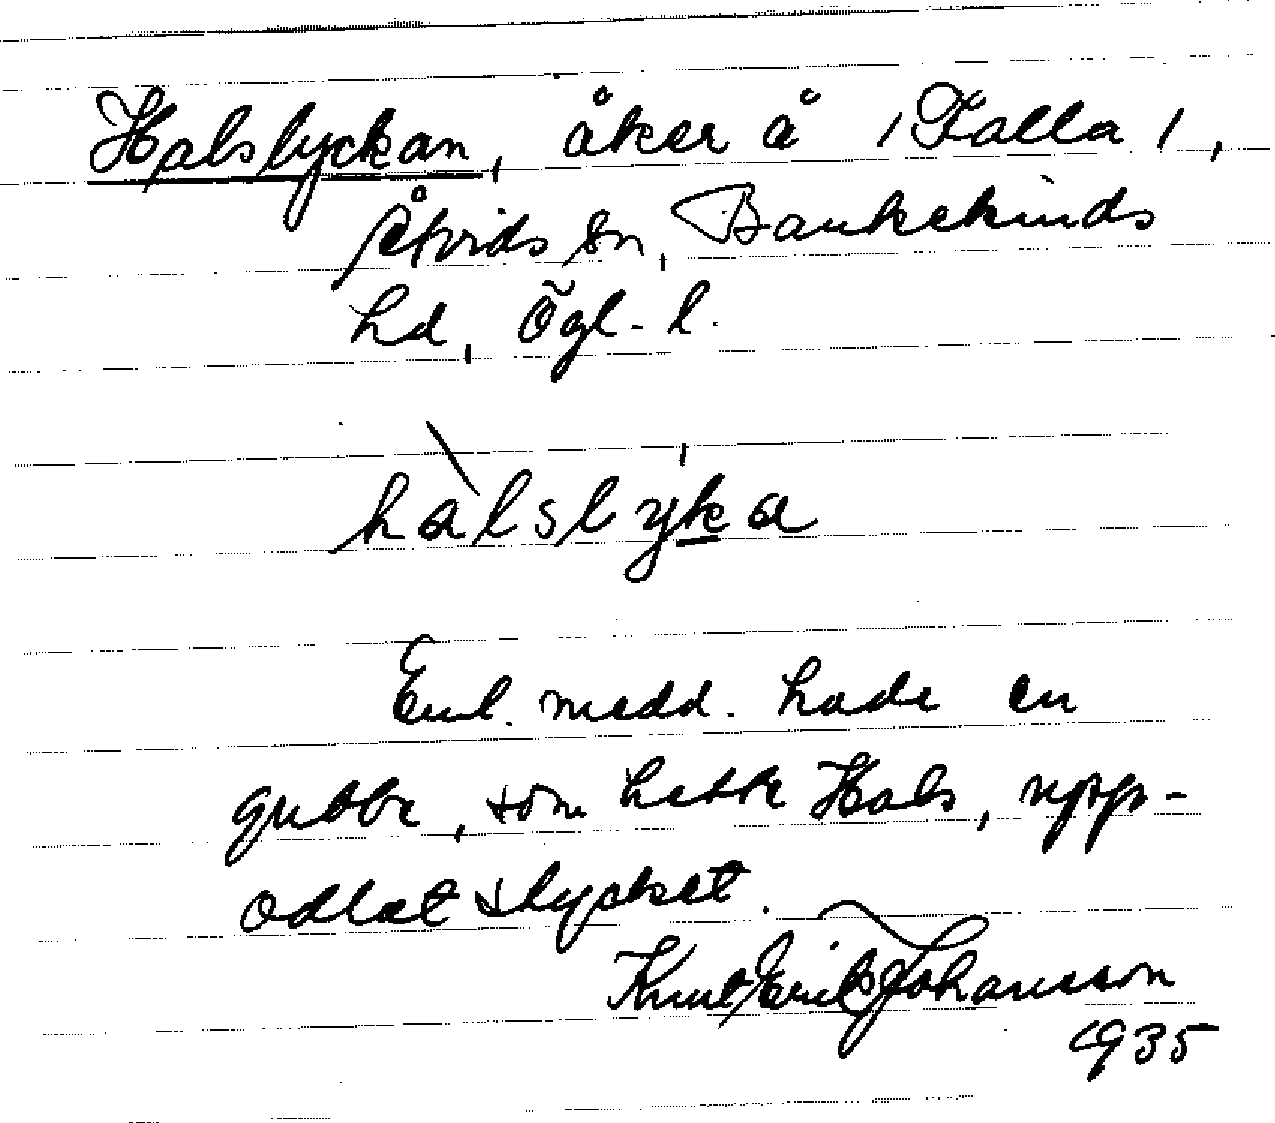 Halslyckan, åker å /Falla/,
Åtvids sn, Bankekinds
hd, Ögl. l.
hàlslyka
Enl. medd. hade en
gubbe, som hette Hals, upp-
odlat stycket.
Knut Erik Johansson
1935